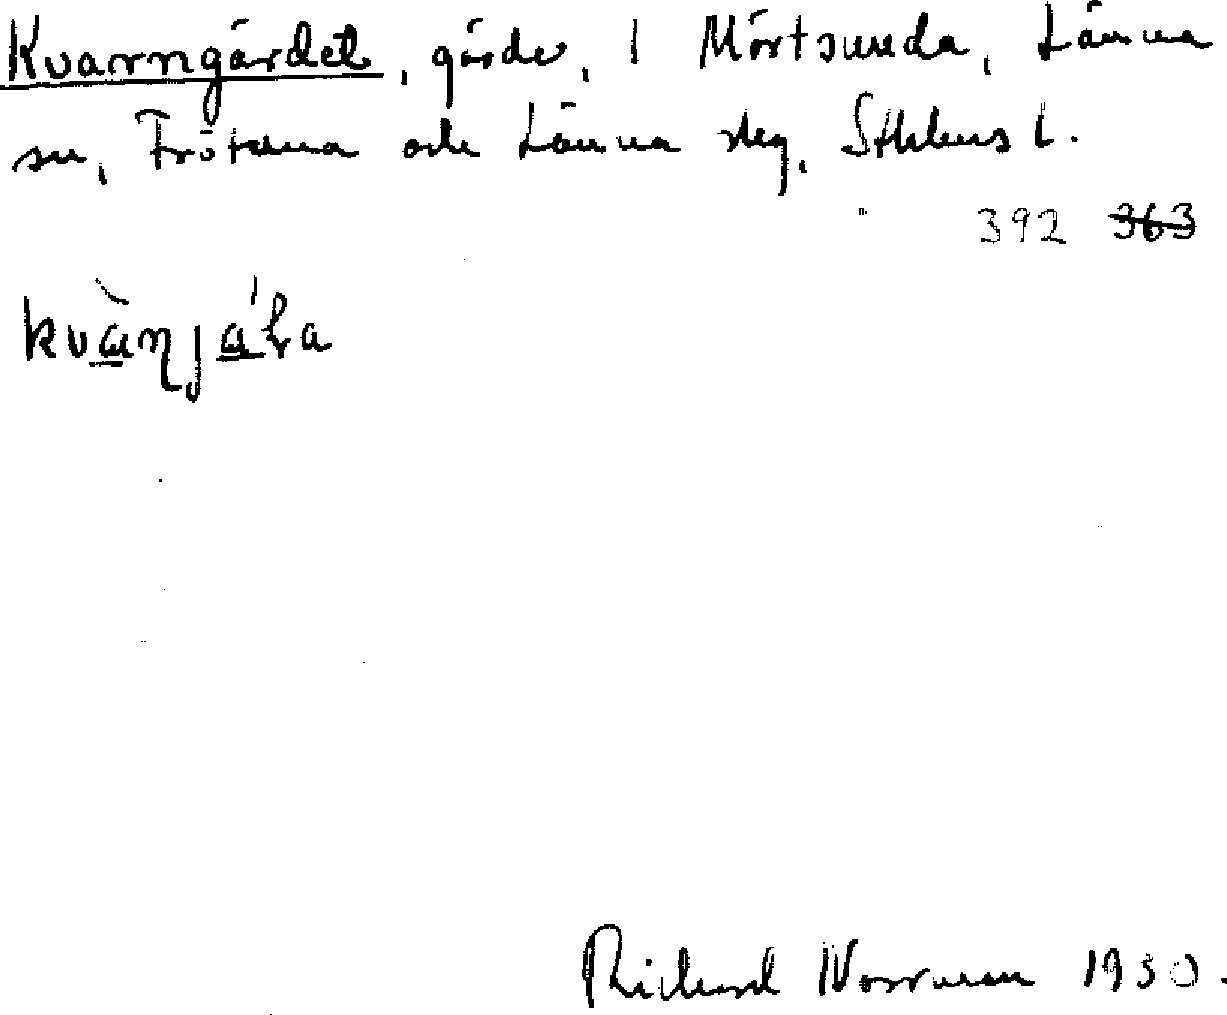 Kvarngärdet, gärde, i Mörtsunda, Länna
sn, Frötuna och Länna skg, Sthlms l.
392 363
kvànjáɽa
Richard Norrman 1930.